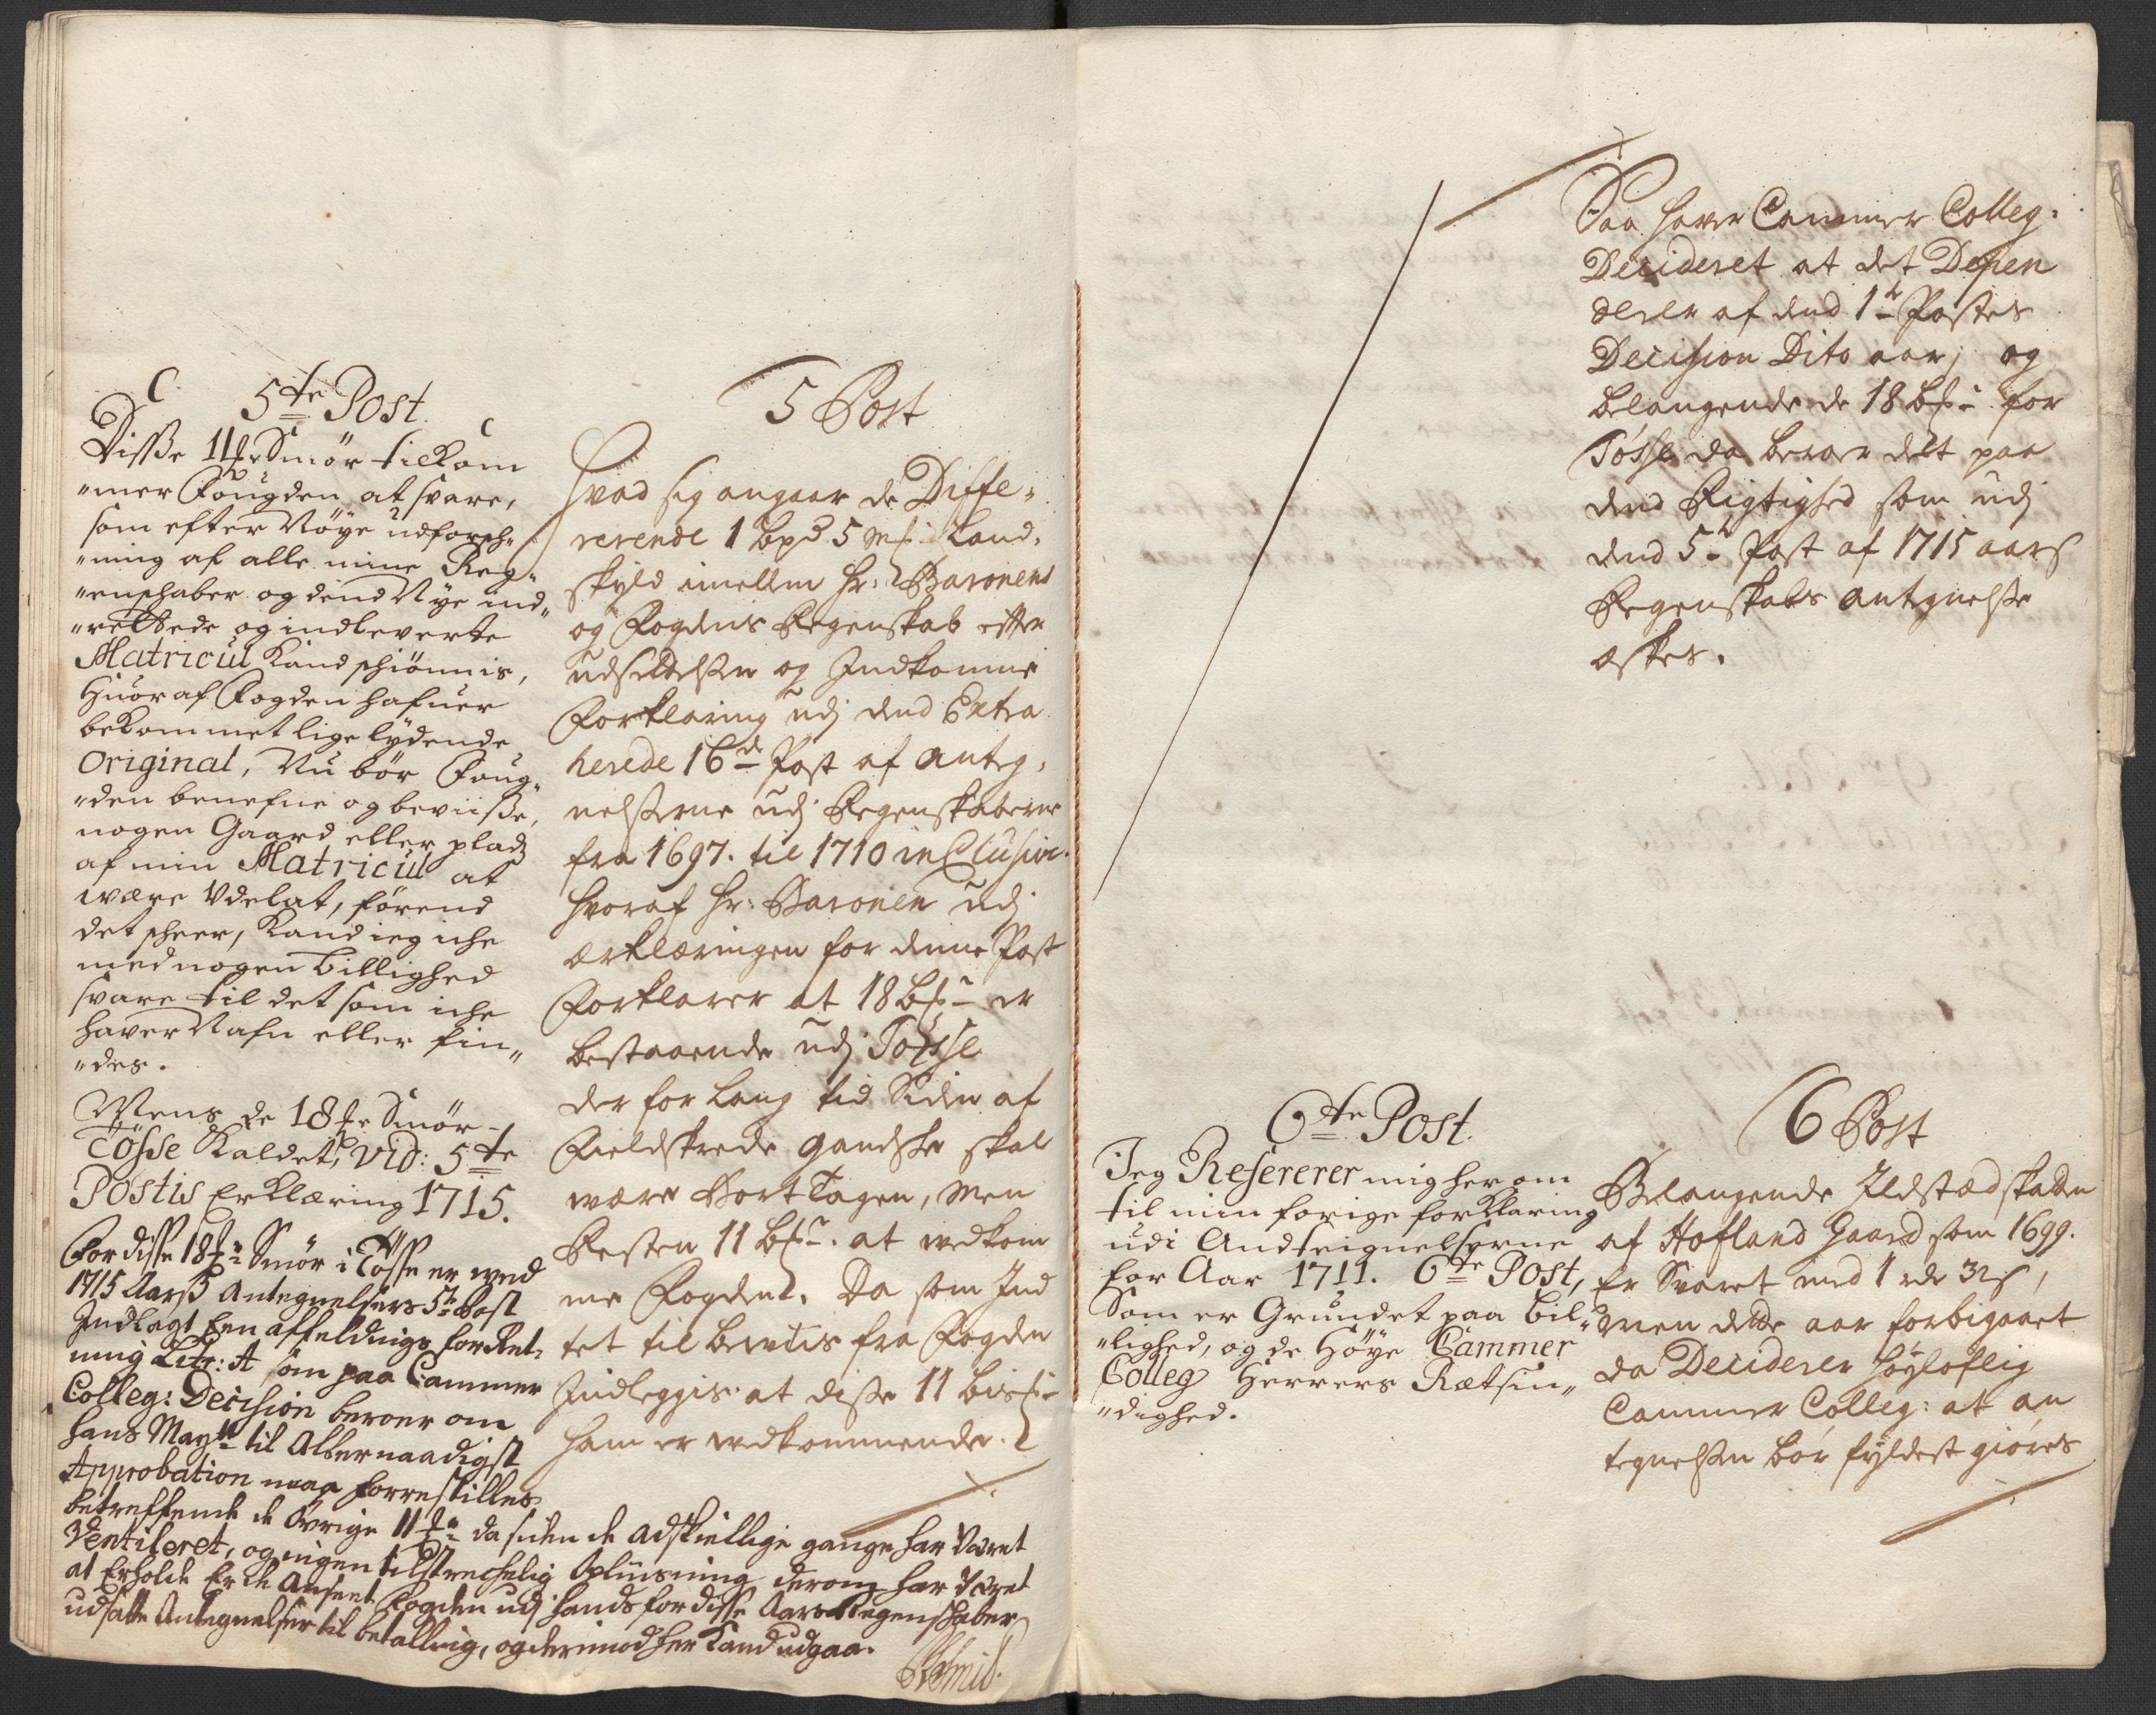 5te Post.
Disse 11 Smör tilkom
"mer Fougden at svare,
som efter Nöye udforsch"
"ning af alle mine Reg"
"enschaber og dend Nye ind"
"rettede og indleverte
Matricul Kand schiönnis,
Huoraf Fogden hafuer
bekommet lige lydende
Original, Nu bör Foug"
"den benefne og beviisse,
nogen Gaard eller pladz
af min Matricul at
være Udelat, förend
det scheer, Kand ieg iche
med nogen billighed
svare til det som iche
haver Nafn eller fin"
"des.
Mens de 18 Smör
Tösse Kaldet, vid: 5te
Postis Erklæring 1715.
For disse 18 Smör i Tösse er ved
1715 Aars Antegnelsers 5te Post
Indlagt Een affældnings forret-
ning Litr: A som paa Cammer
Colleg: Decision beroer om
hans Maytt til Allernaadigst
Approbation maa forrestilles
betreffende de Övrige 11 da siden de adskiellige gange har Været
Ventileret, og ingen tilstrechelig Oplüsning derom har Været
at Erholde Er de Anseet Fogden udj hands for disse Aars Regenschaber
udsatte Antegnelser til betalling, og derimod her Kand udgaa.
5 Post
Hvad sig angaar de Diffe-
rerende 1 bpd 5 mk Land-
skyld imellem Hr: Baronens
og Fogdens Regenskab efter
udsettelsen og Indkomne
Forklaring udj dend Extra
herede 16de Post af Anteg-
nelserne udj Regenskaberne
fra 1697. til 1710 inclusive.
hvoraf Hr: Baronen udj
erklæringen for denne Post
Forklarer at 18 er
bestaaende udj Tösse
der for lang tid Siden af
Fieldskrede gandske skal
være Bort Tagen, Men
Resten 11 at vedkom
me Fogden. Da som Ind
tet til beviis fra Fogden
Indleggis at disse 11
ham er vedkommende.
Saa haver Cammer Colleg:
Decideret at det Depen
derer af dend 1te Postes
Decision Dito aar; og
belangende de 18 for
Tösse da beroer det paa
dend Rigtighed som udj
dend 5te Post af 1715 aars
Regenskabs antegnelse
eskes.
6te Post.
Jeg Refererer mig her om
til min forige forklaring
udi Andteignelserne
for Aar 1711. 6te Post,
Som er Grundet paa bil"
"lighed, og de Höye Cammer
Colleg Herrers Rætsin"
"dighed.
6 Post
Belangende Ildstæd skatten
af Hofland Gaard som 1699.
Er Svaret med 1 rdr 32 s,
Men dette aar forbigaaet
da Deciderer höyloflig
Cammer Colleg: at an
tegnelsen bör fyldest giöres